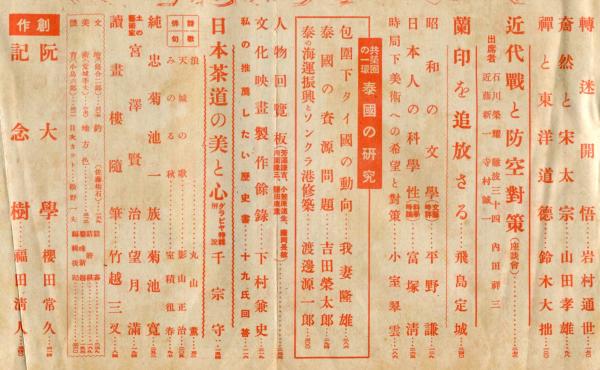 轉迷開悟 岩村通世
奝然と宋太宗 山田孝雄
禪と東洋道德 鈴木大拙
近代戰と防空對策(座談會)
出席者 石川榮耀 難波三十四 內田祥三
近藤新一 寺村誠一
蘭印を追放さる 飛島定城
昭和の文學(文藝時評) 平野謙
日本人の科學性(科學時論) 富塚淸
時局下美術への希望と對策 小室翠雲
共榮圈の一環 泰國の硏究
包圍下タイ國の動向 我妻隆雄
泰國の資源問題 吉田榮太郞
泰の海運振興とソンクラ港修築 渡邊源一郞
人物回覽板
文化映畫製作餘錄 下村兼史
私の推薦したい歷史書 十九氏回答
日本茶道の美と心 グラビヤ特輯解說 千宗守
詩歌俳句
浪 丸山薰
天城の歌 影山正治
みのる秋 室積徂春
純忠菊池一族 菊池寬
土の藝術家 宮澤賢治 望月滿
讀畫樓隨筆 竹越三叉
創作
阮大學 櫻田常久
記念樹 福田淸人